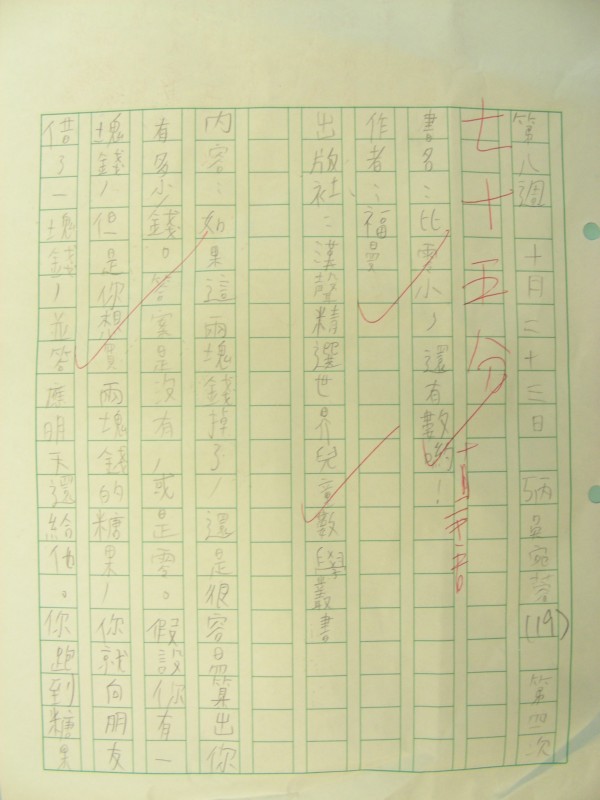 第八週 十月二十三日 (19) 第四次
七十五分
書名：比零小，還有數喲！
作者：福景
出版社：漢聲精選世界兒童數學叢書
內容：如果這兩塊錢掉了，還是很容易算出你
有多少錢。答案是沒有，或是零。假設你有一
塊錢，但是你想買兩塊錢的糖果，你就向朋友
借了一塊錢，並答應明天還給他。你跑到糖果